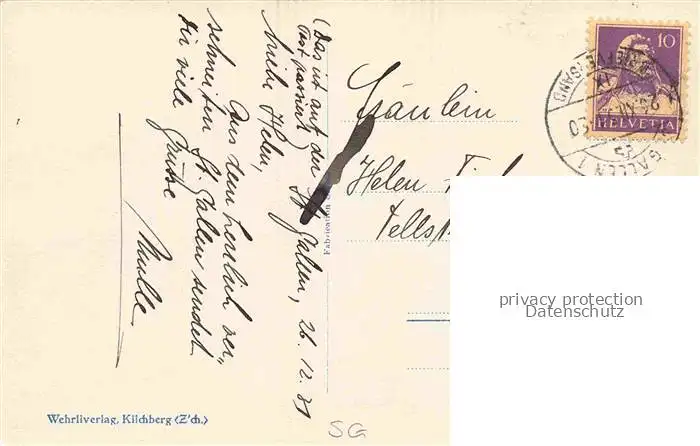 (Das ist auf der
Post passiert)
St. Gallen, 26.12.31
Liebe Helen,
Aus dem herrlich ver-
schneiten St. Gallen sendet
dir viele Grüsse
Fräulein
Helen
10
HELVETIA
GALLEN 1
BRIEFVERSAND
Fabrication
privacy protection
Datenschutz
Wehrliverlag, Kilchberg (Z'ch.)
SG